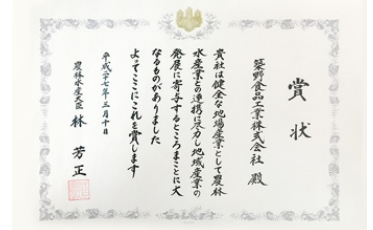 賞状
築野食品工業株式会社 殿
貴社は健全な地場産業として農林
水産業との連携に尽力し地域産業の
発展に寄与するところまことに大
なるものがありました
よってここにこれを賞します
平成二十七年三月十日
農林水産大臣 林 芳正